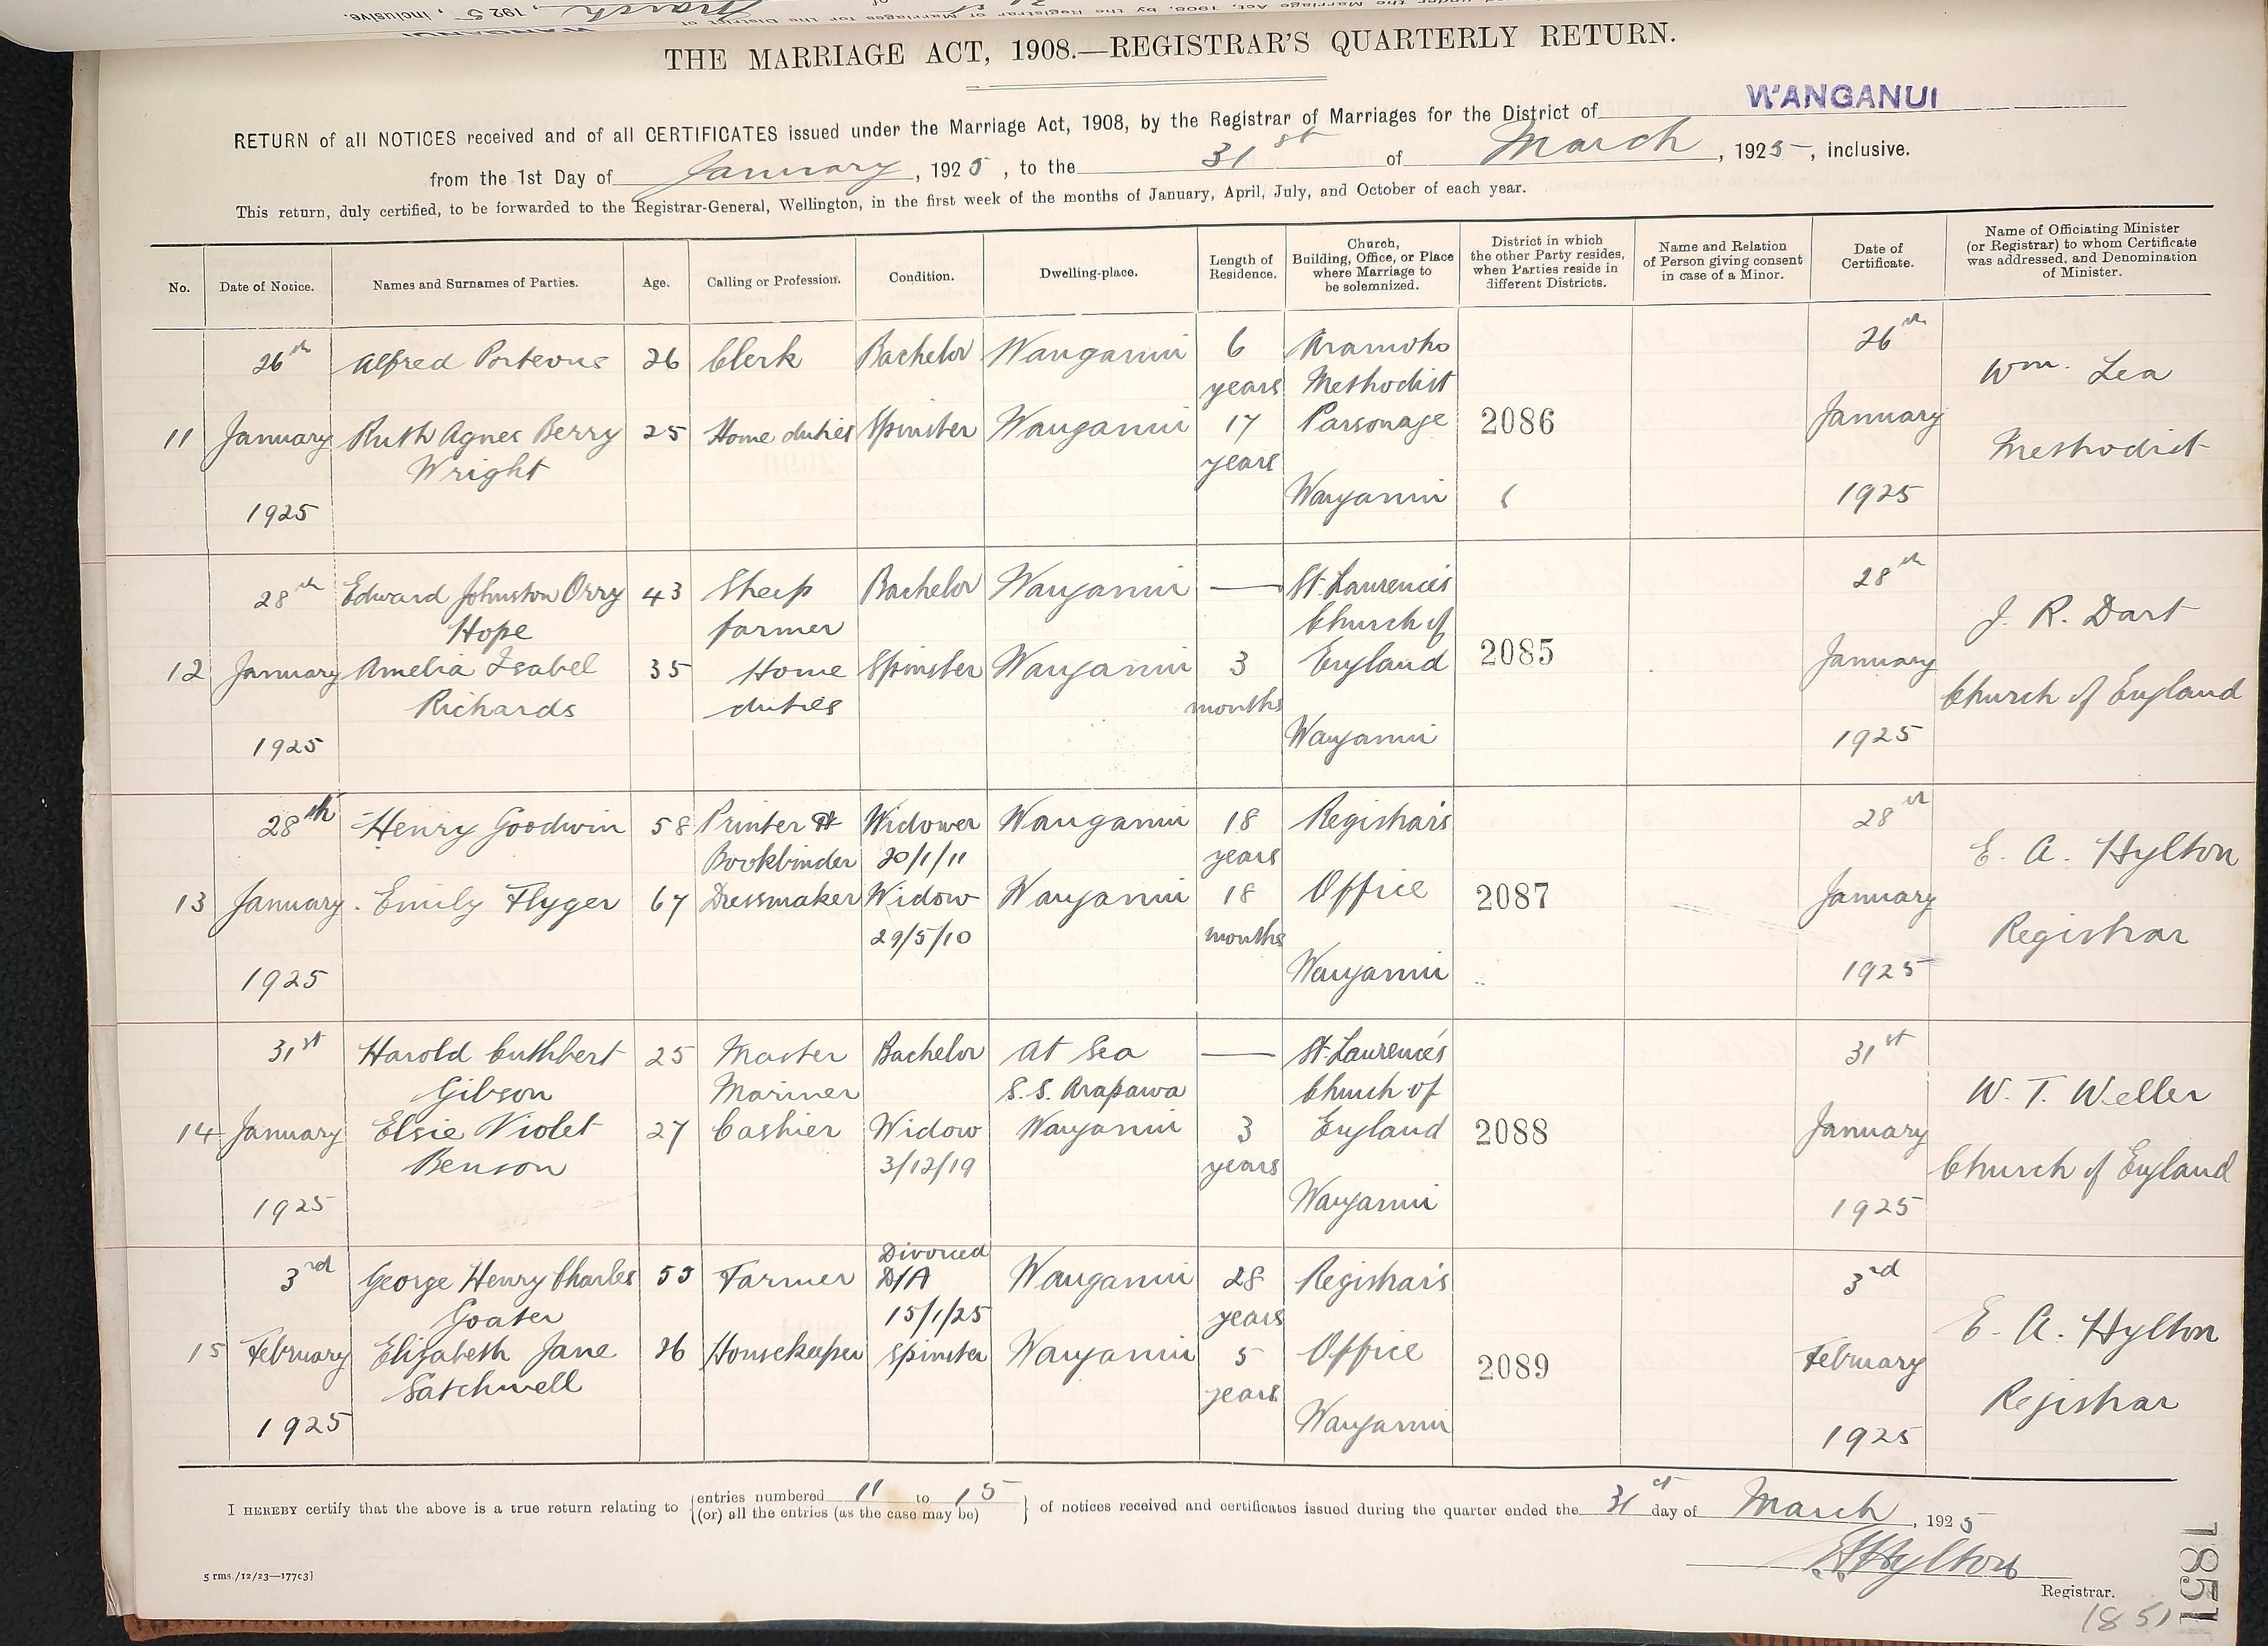 THE MARRIAGE ACT, 1908.—REGISTRAR'S QUARTERLY RETURN.
RETURN of all NOTICES received and of all CERTIFICATES issued under the Marriage Act, 1908, by the Registrar of Marriages for the District of WANGANUI
from the 1st Day of January, 1925, to the 31st of March, 1925, inclusive.
This return, duly certified, to be forwarded to the Registrar-General, Wellington, in the first week of the months of January, April, July, and October of each year.
No. Date of Notice. Names and Surnames of Parties. Age. Calling or Profession. Condition. Dwelling-place. Length of Residence. Church, Building, Office, or Place where Marriage to be solemnized. District in which the other Party resides, when Parties reside in different Districts. Name and Relation of Person giving consent in case of a Minor. Date of Certificate. Name of Officiating Minister (or Registrar) to whom Certificate was addressed, and Denomination of Minister.
26th Alfred Porteous 26 Clerk Bachelor Wanganui 6 Aramoho 26th
years Methodist Wm. Lea
11 January Ruth Agnes Berry 25 Home duties Spinster Wanganui 17 Parsonage 2086 January
Wright years Methodist
1925 Wanganui 1925
28th Edward Johnston Orry 43 Sheep Bachelor Wanganui — St. Laurence's 28th
Hope farmer Church of J. R. Dart
12 January Amelia Isabel 35 Home Spinster Wanganui 3 England 2085 January
Richards duties months Church of England
1925 Wanganui 1925
28th Henry Goodwin 58 Printer & Widower Wanganui 18 Registrar's 28th
Bookbinder 20/1/11 years E. A. Hylton
13 January Emily Flyger 67 Dressmaker Widow Wanganui 18 Office 2087 January
29/5/10 months Registrar
1925 Wanganui 1925
31st Harold Cuthbert 25 Master Bachelor At Sea — St. Laurence's 31st
Gibson Mariner S.S. Arapawa Church of W. T. Weller
14 January Elsie Violet 27 Cashier Widow Wanganui 3 England 2088 January
Benson 3/12/19 years Church of England
1925 Wanganui 1925
Divorced
3rd George Henry Charles 55 Farmer D/A Wanganui 28 Registrar's 3rd
Goater 15/1/25 years E. A. Hylton
15 February Elizabeth Jane 26 Housekeeper Spinster Wanganui 5 Office 2089 February
Satchwell years Registrar
1925 Wanganui 1925
I HEREBY certify that the above is a true return relating to {entries numbered 11 to 15 / (or) all the entries (as the case may be)} of notices received and certificates issued during the quarter ended the 31st day of March, 1925
E A Hylton
Registrar.
5 rms./12/23—17703]
1851
1851